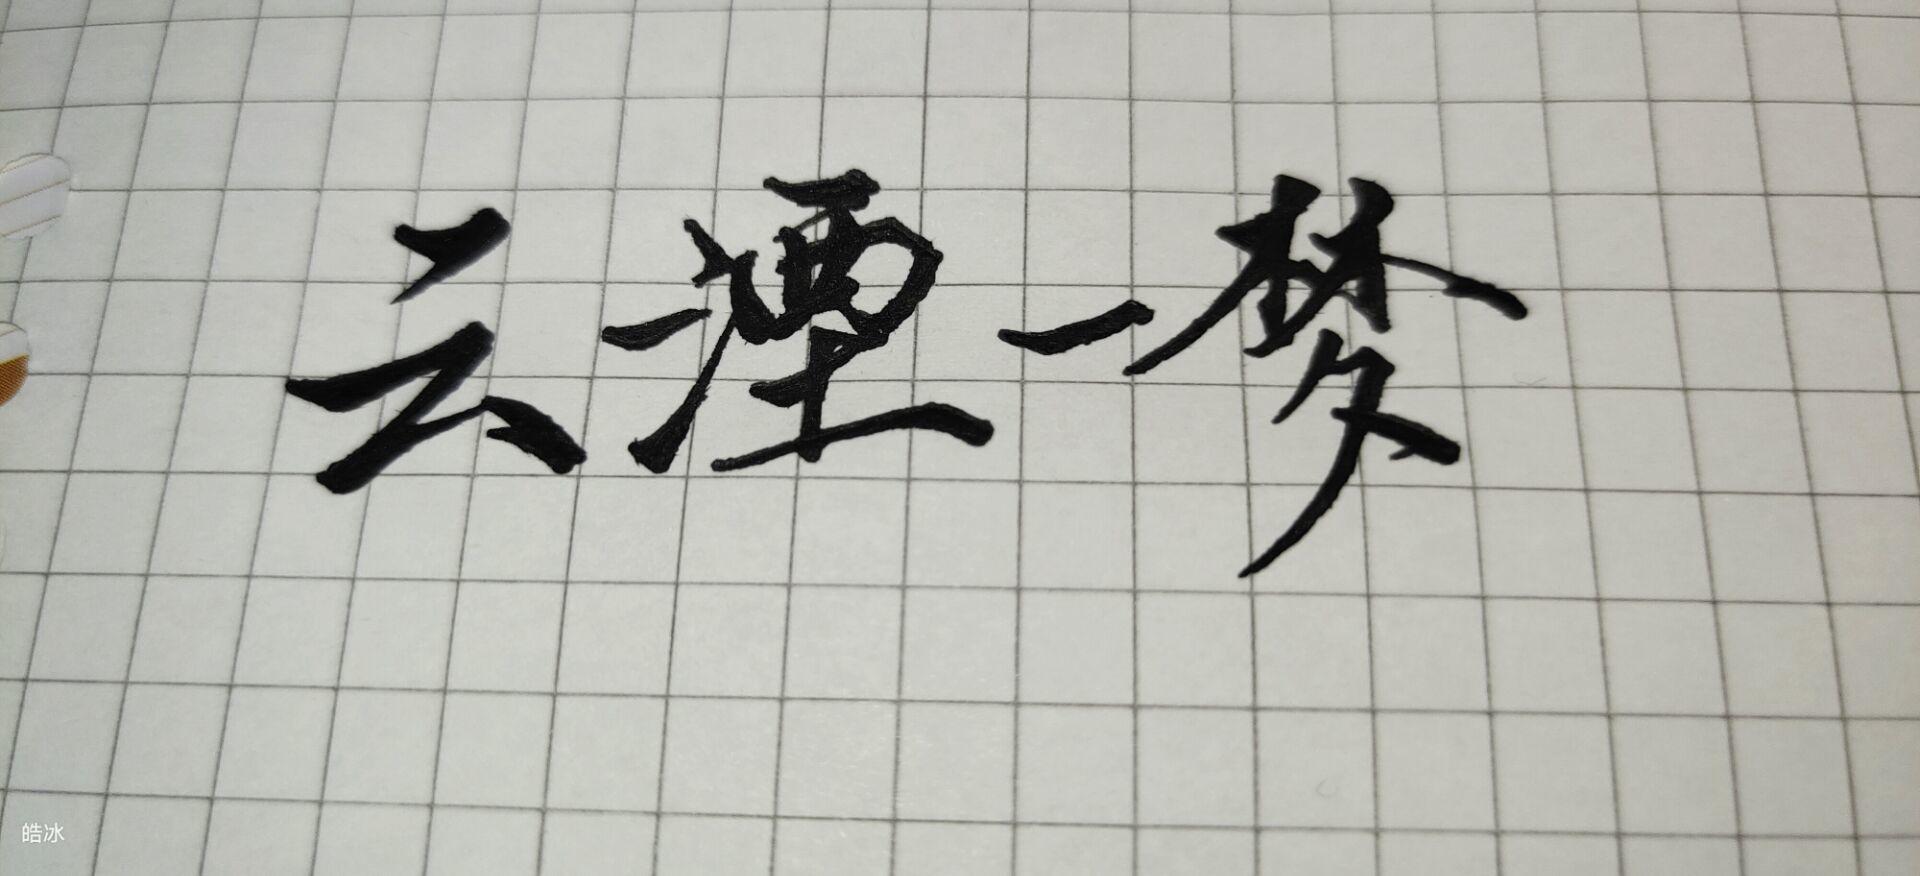 云湮一梦
皓冰